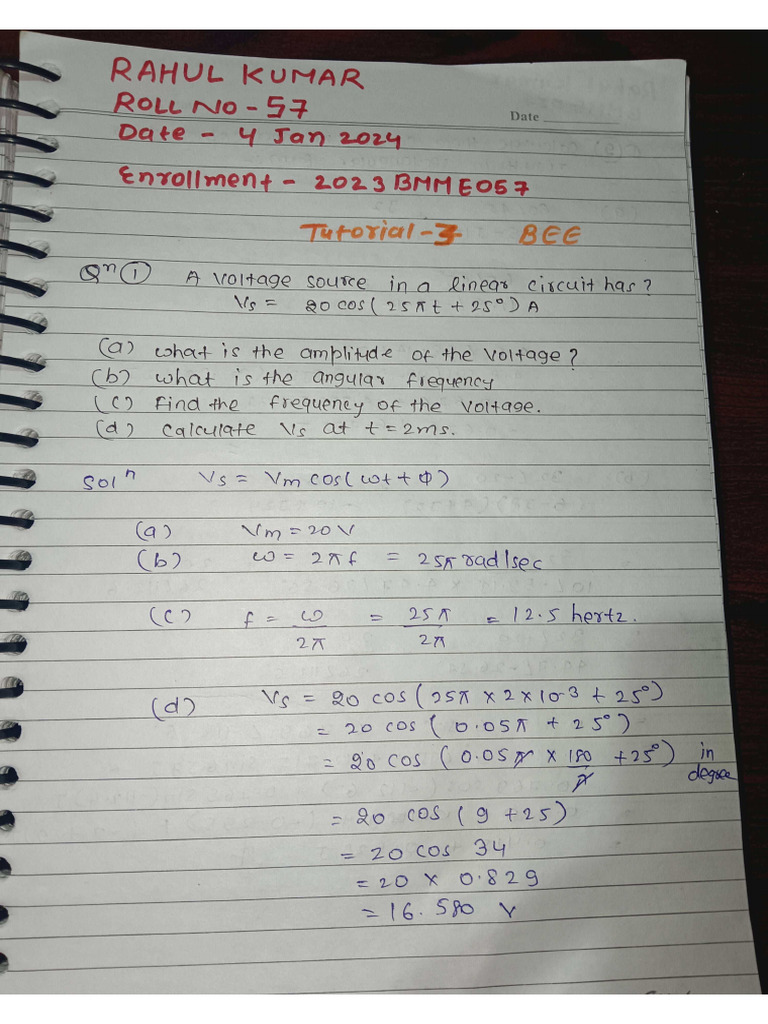 RAHUL KUMAR
ROLL NO - 57
Date
Date - 4 Jan 2024
Enrollment - 2023BMME057
Tutorial - 3 BEE
Qn ① A voltage source in a linear circuit has?
Vs = 20 cos(25πt + 25°) A
(a) what is the amplitude of the voltage?
(b) what is the angular frequency
(c) find the frequency of the voltage.
(d) calculate Vs at t = 2ms.
Solⁿ Vs = Vm cos(ωt + Φ)
(a) Vm = 20 V
(b) ω = 2πf = 25π rad/sec
(c) f = ω/2π = 25π/2π = 12.5 hertz.
(d) Vs = 20 cos(25π × 2 × 10-3 + 25°)
= 20 cos (0.05π + 25°)
= 20 cos (0.05π × 180/π + 25°) in degree
= 20 cos (9 + 25)
= 20 cos 34
= 20 × 0.829
= 16.580 V